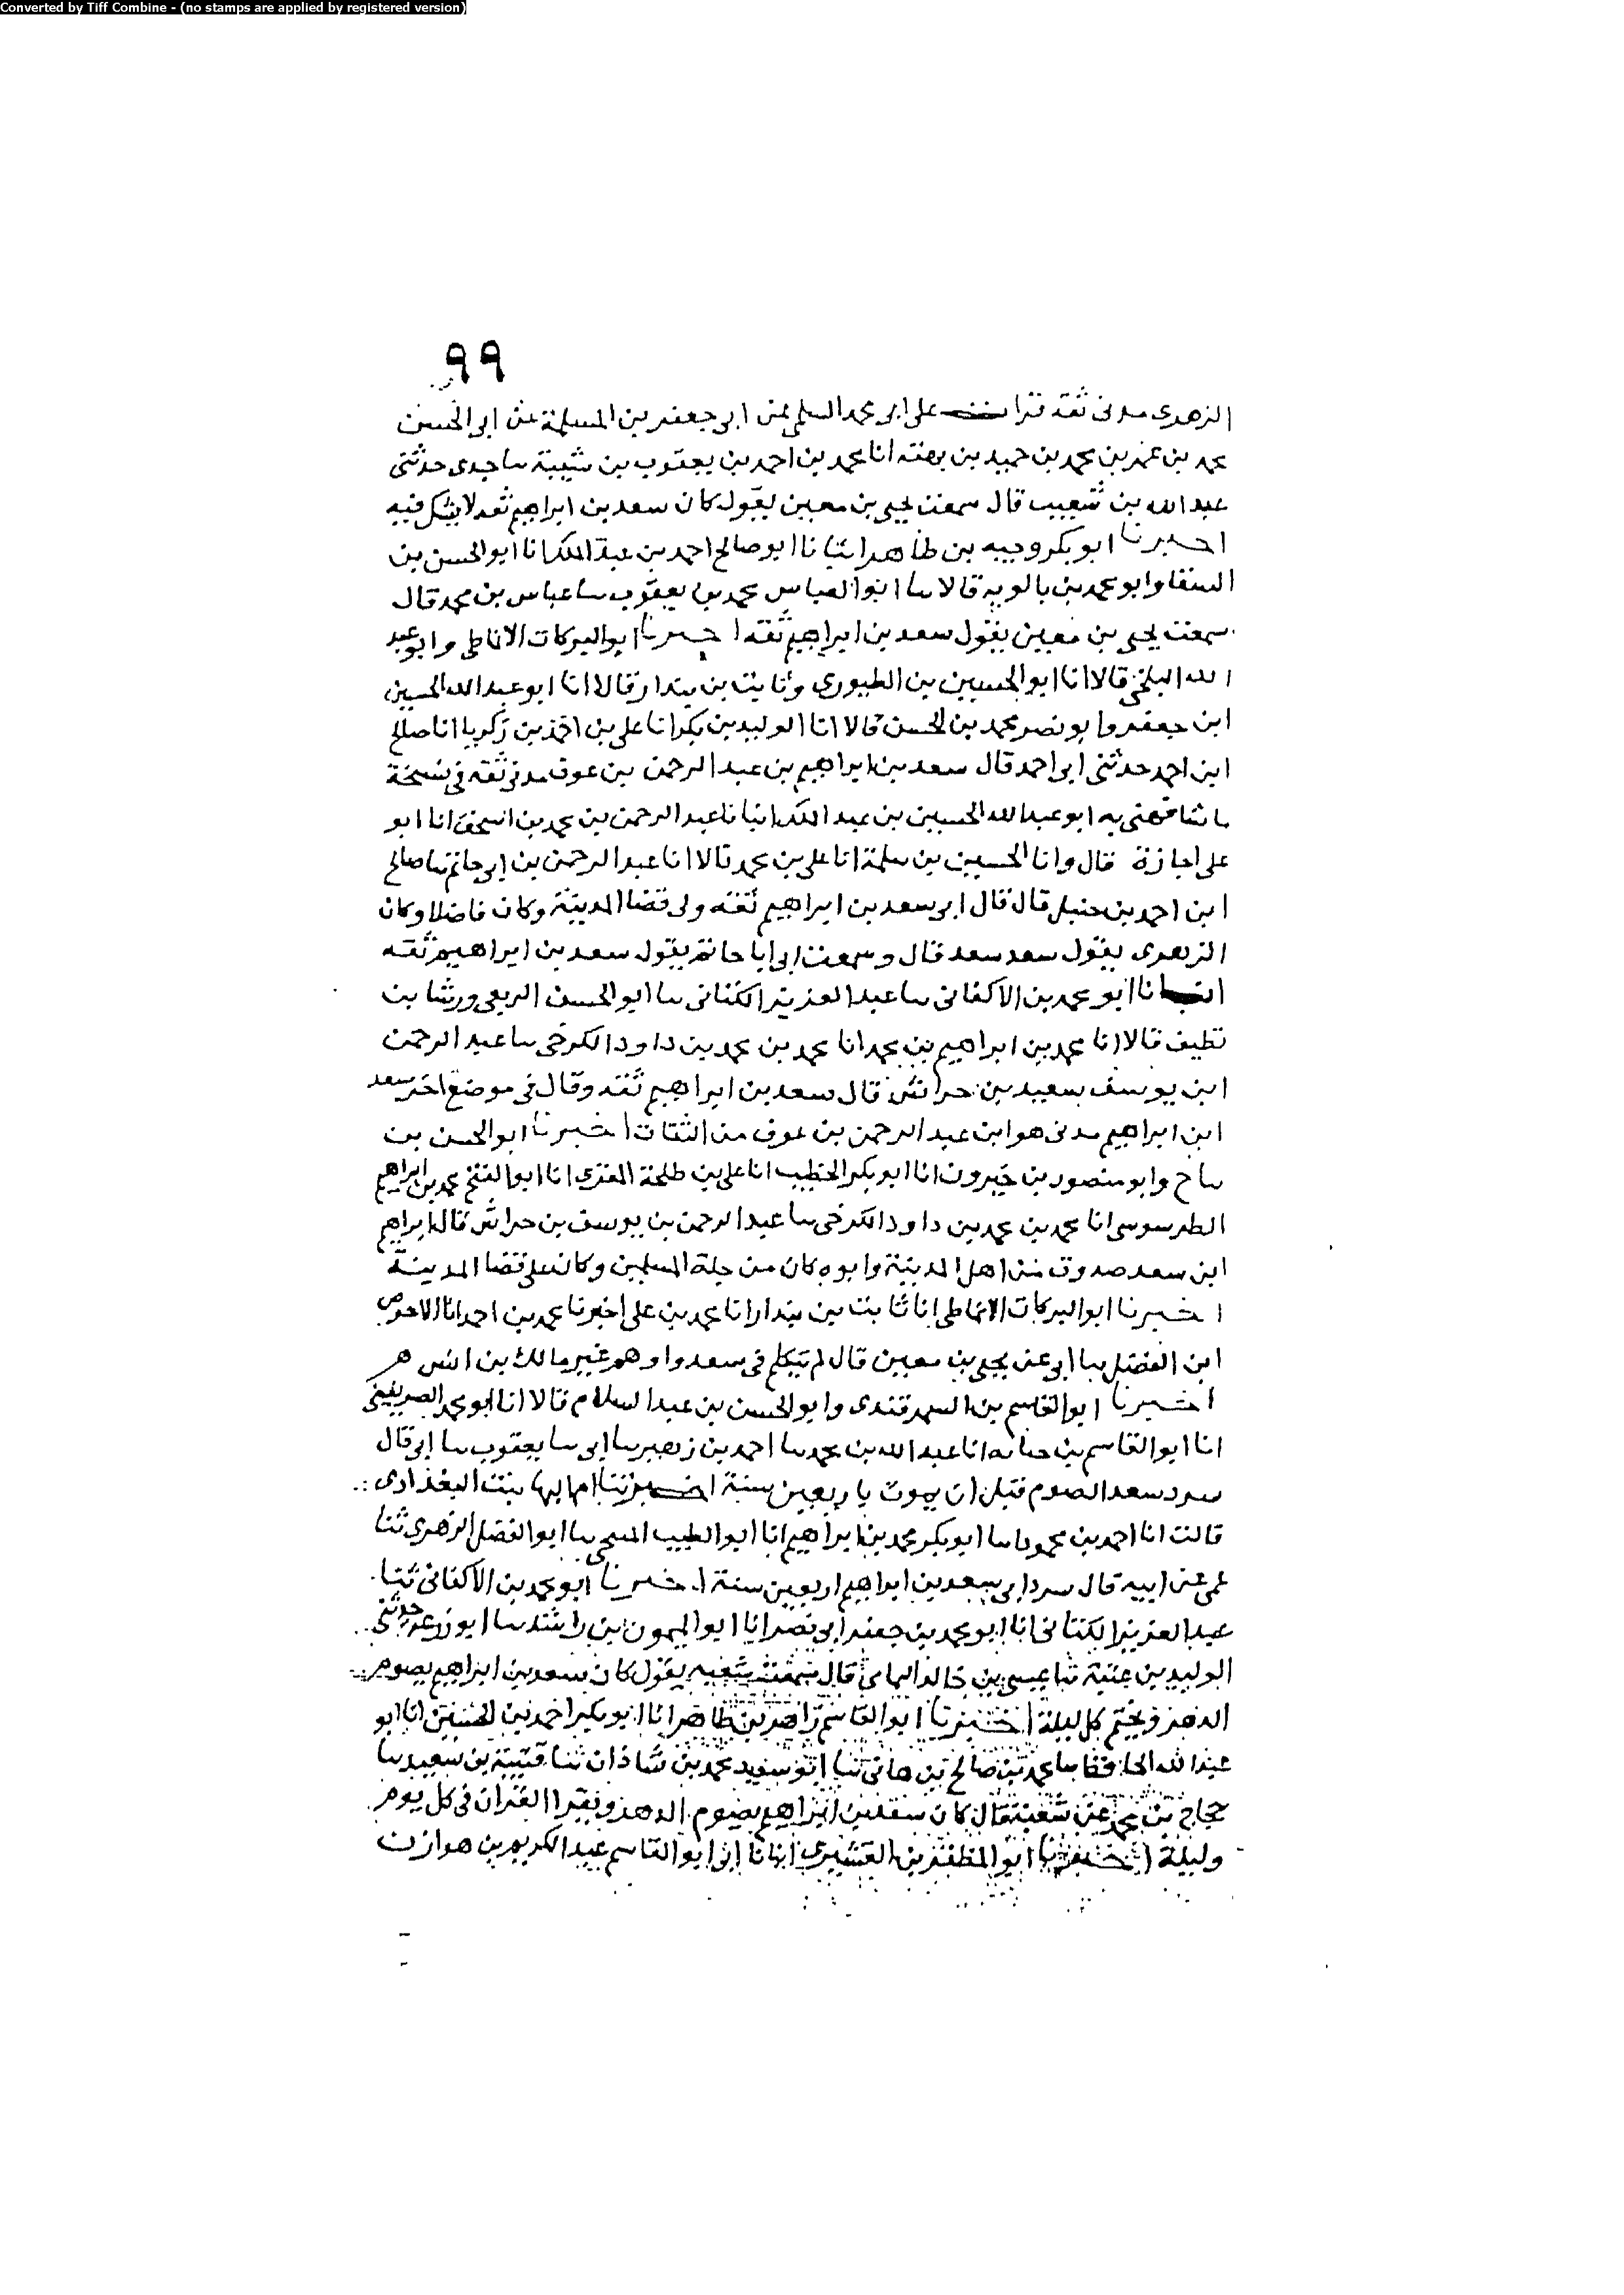 Converted by Tiff Combine - (no stamps are applied by registered version)
٩٩
الزهرى مدنى ثقة قرات على ابى محمد السلمى عن ابى جعفر بن المسلمة عن ابى الحسن
محمد بن عمر بن محمد بن حميد بن بهته انا محمد بن احمد بن يعقوب بن شيبة نا جدى حدثنى
عبد الله بن شعيب قال سمعت يحيى بن معين يقول كان سعد بن ابراهيم ثقه لا يشك فيه
اخبرنا ابو بكر وجيه بن طاهر انبانا ابو صالح احمد بن عبد الملك انا ابو الحسن بن
السقا وابو محمد بن بالويه قالا نا ابو العباس محمد بن يعقوب نا عباس بن محمد قال
سمعت يحيى بن معين يقول سعد بن ابراهيم ثقه اخبرنا ابو البركات الانماطى وابو عبد
الله البلخى قالا انا ابو الحسين بن الطيورى وثابت بن بندار قالا انا ابو عبد الله الحسين
ابن جعفر وابو نصر محمد بن الحسن قالا انا الوليد بن بكر انا على بن احمد بن زكريا انا صالح
ابن احمد حدثنى ابى احمد قال سعد بن ابراهيم بن عبد الرحمن بن عوف مدنى ثقه فى نسخة
ما شافهنى به ابو عبد الله الحسين بن عبد الملك انبانا عبد الرحمن بن محمد بن اسحق انا ابو
على اجازة قال وانا الحسين بن سلمة انا على بن محمد قالا انا عبد الرحمن بن ابى حاتم نا صالح
ابن احمد بن حنبل قال قال ابى سعد بن ابراهيم ثقه ولى قضا المدينة وكان فاضلا وكان
الزهرى يقول سعد سعد قال وسمعت ابى ابا حاتم يقول سعد بن ابراهيم ثقه
انبانا ابو محمد بن الاكفانى نا عبد العزيز الكتانى نا ابو الحسن الربعى ورشا بن
نظيف قالا انا محمد بن ابراهيم بن محمد انا محمد بن محمد بن داود الكرخى نا عبد الرحمن
ابن يوسف بن سعيد بن خراش قال سعد بن ابراهيم ثقه وقال فى موضع اخر سعد
ابن ابراهيم مدنى هو ابن عبد الرحمن بن عوف من الثقات اخبرنا ابو الحسن بن
نا ح وابو منصور بن خيرون انا ابو بكر الخطيب انا على بن طلحة المقرى انا ابو الفتح محمد بن ابراهيم
الطرسوسى انا محمد بن محمد بن داود الكرخى نا عبد الرحمن بن يوسف بن خراش قال ابراهيم
ابن سعد صدوق من اهل المدينة وابوه كان من جلة المسلمين وكان على قضا المدينة
اخبرنا ابو البركات الانماطى انا ثابت بن بندار انا محمد بن على اخبرنا محمد بن احمد انا الاحوص
ابن المفضل نا ابى عن يحيى بن معين قال لم يتكلم فى سعد وا وهو غير مالك بن انس هر
اخبرنا ابو القاسم بن السمرقندى وابو الحسن بن عبد السلام قالا انا ابو محمد الصريفينى
انا ابو القاسم بن حبابه انا عبد الله بن محمد نا احمد بن زهير نا ابى نا يعقوب نا ابى قال
سرد سعد الصوم قبل ان يموت باربعين سنة اخبرتنا ام البها بنت البغدادى
قالت انا احمد بن محمود نا ابو بكر محمد بن ابراهيم انا ابو الطيب المنبجى نا ابو الفضل الزهرى ثنا
عمى عن ابيه قال سرد ابى سعد بن ابراهيم اربعين سنة اخبرنا ابو محمد بن الاكفانى ثنا
عبد العزيز الكتانى انا ابو محمد بن جعفر ابى نصر انا ابو الميمون بن راشد نا ابو زرعة حدثنى
الوليد بن عتبة ثنا عيسى بن خالد اليمامى قال سمعت شعبه يقول كان سعد بن ابراهيم يصوم
الدهر ويختم كل ليلة اخبرنا ابو القاسم زاهر بن طاهر انا ابو بكر احمد بن الحسين انا ابو
عبد الله الحافظ نا محمد بن صالح بن هانى ثنا ابو سعيد محمد بن شاذان ثنا قتيبة بن سعيد نا
حجاج بن محمد عن شعبة قال كان سعد بن ابراهيم يصوم الدهر ويقرا القران فى كل يوم
وليلة اخبرنا ابو المظفر بن القشيرى انبانا ابى ابو القاسم عبد الكريم بن هوازن